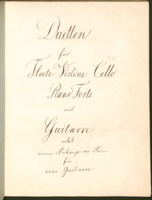 Duetten
für
Floete Violine Cello
Piano Forte
und
Guitarre
nebst
einem Anhange von
für
eine Guitarre